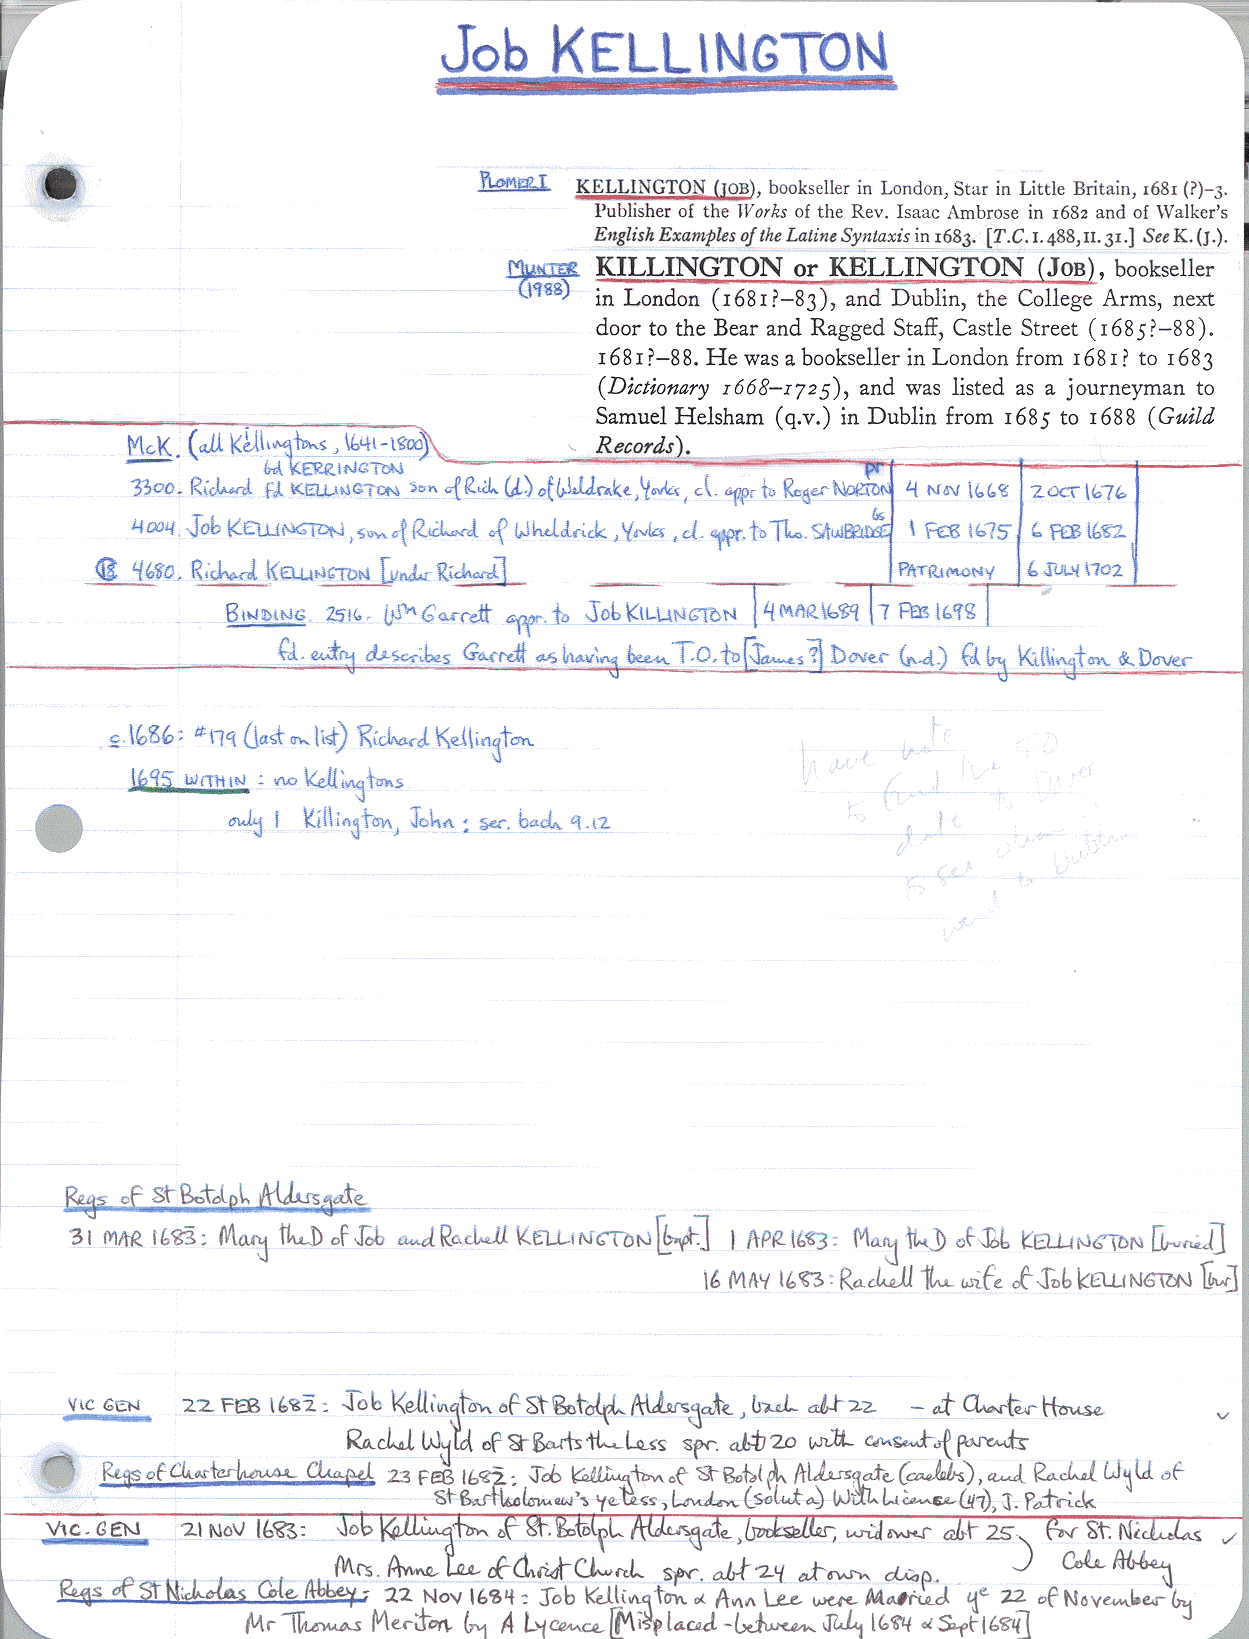 Job KELLINGTON
PLOMER I
KELLINGTON (JOB), bookseller in London, Star in Little Britain, 1681 (?)–3.
Publisher of the Works of the Rev. Isaac Ambrose in 1682 and of Walker's
English Examples of the Latine Syntaxis in 1683. [T.C. I. 488, II. 31.] See K. (J.).
MUNTER
(1988)
KILLINGTON or KELLINGTON (JOB), bookseller
in London (1681?–83), and Dublin, the College Arms, next
door to the Bear and Ragged Staff, Castle Street (1685?–88).
1681?–88. He was a bookseller in London from 1681? to 1683
(Dictionary 1668–1725), and was listed as a journeyman to
Samuel Helsham (q.v.) in Dublin from 1685 to 1688 (Guild
Records).
McK. (all Kellingtons, 1641-1800)
bd KERRINGTON
pr
3300. Richard fd KELLINGTON son of Rich (d.) of Weldrake, Yorks, cl. appr to Roger NORTON 4 NOV 1668 2 OCT 1676
bs
4004. Job KELLINGTON, son of Richard of Wheldrick, Yorks, cl. appr. to Tho. SAWBRIDGE 1 FEB 1675 6 FEB 1682
4680. Richard KELLINGTON [under Richard] PATRIMONY 6 JULY 1702
BINDING 2516. Wm Garrett appr. to Job KILLINGTON 4 MAR 1689 7 FEB 1698
fd. entry describes Garrett as having been T.O. to [James?] Dover (n.d.) fd by Killington & Dover
c.1686: #179 (last on list) Richard Kellington
1695 WITHIN: no Kellingtons
only 1 Killington, John: ser. bach 9.12
have note
to find his TO
date to Dover
to see when
went to Dublin
Regs of St Botolph Aldersgate
31 MAR 1683: Mary the D of Job and Rachell KELLINGTON [bapt.] 1 APR 1683: Mary the D of Job KELLINGTON [buried]
16 MAY 1683: Rachell the wife of Job KELLINGTON [bur]
VIC GEN 22 FEB 1682: Job Kellington of St Botolph Aldersgate, bach abt 22 – at Charter House
Rachel Wyld of St Barts the Less spr. abt 20 with consent of parents
Regs of Charterhouse Chapel 23 FEB 1682: Job Kellington of St Botolph Aldersgate (caelebs), and Rachel Wyld of
St Bartholomew's ye less, London (soluta) With License (47), J. Patrick
VIC-GEN 21 NOV 1683: Job Kellington of St. Botolph Aldersgate, bookseller, widower abt 25 for St. Nicholas
Mrs. Anne Lee of Christ Church spr. abt 24 at own disp. Cole Abbey
Regs of St Nicholas Cole Abbey: 22 NOV 1684: Job Kellington & Ann Lee were Married ye 22 of November by
Mr Thomas Meriton by A Lycence [Misplaced - between July 1684 & Sept 1684]